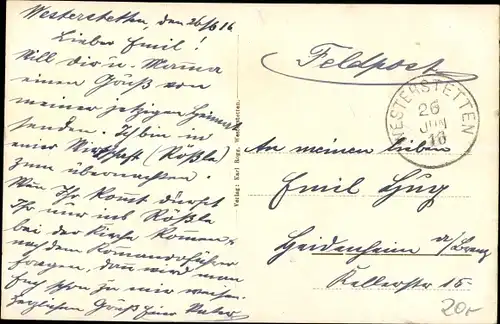 Westerstetten, den 26/6 16
Lieber Emil!
Will dir u. Mama
einen Gruß von
meiner jetzigen Heimat
senden. Ich bin in
einer Wirtschaft (Rößle)
zum übernachten.
Wen Ihr komt dürfet
Ihr nur ins Rößle
bei der Kirche kommen
nach dem Komandoführer
fragen, dan wird man
Euch schon zu mir weisen.
Herzlichen Gruß Euer Vater
Verlag: Karl Hugg, Westerstetten.
Feldpost
WESTERSTETTEN
26
JUN
16
An meinen lieben
Emil Hug
Heidenheim a/Brenz
Kellerstr 15-
20,-